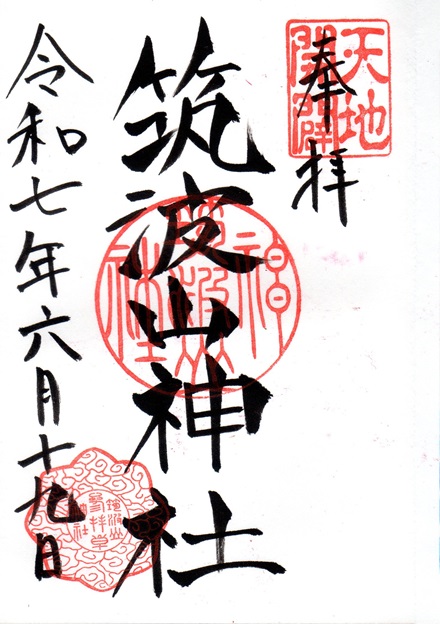 奉拝
天地
開闢
筑波山神社
令和七年六月十九日
筑波山
参拝章
神社